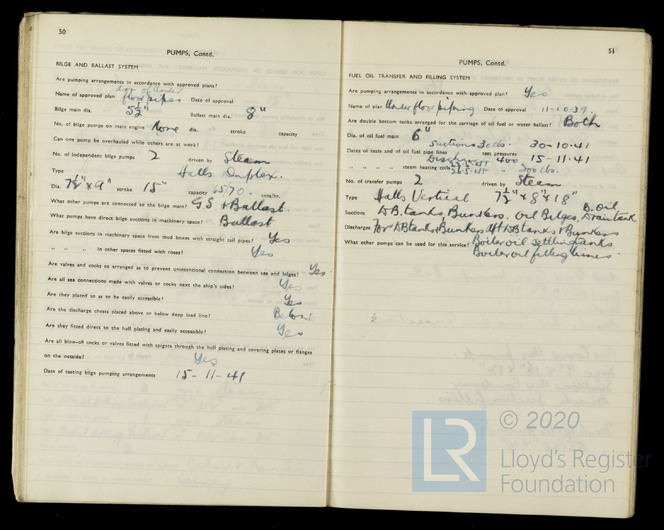 50
PUMPS, Contd.
BILGE AND BALLAST SYSTEM
Are pumping arrangements in accordance with approved plans?
Name of approved plan floor pipes Date of approval
Bilge main dia. 5½" Ballast main dia. 8"
No. of bilge pumps on main engine None dia. stroke capacity
Can one pump be overhauled while others are at work?
No. of independent bilge pumps 2 driven by Steam
Type Halls Duplex.
Dia. 7½" x 9" stroke 15" capacity 6570. tons/hr.
What other pumps are connected to the bilge main? G.S & Ballast.
What pumps have direct bilge suctions in machinery space? Ballast
Are bilge suctions in machinery space from mud boxes with straight tail pipes? Yes
" " " in other spaces fitted with roses? Yes
Are valves and cocks so arranged as to prevent unintentional connection between sea and bilges? Yes
Are all sea connections made with valves or cocks next the ship's sides? Yes
Are they placed so as to be easily accessible? Yes
Are the discharge chests placed above or below deep load line? Below
Are they fitted direct to the hull plating and easily accessible? Yes
Are all blow-off cocks or valves fitted with spigots through the hull plating and covering plates or flanges
on the outside? Yes
Date of testing bilge pumping arrangements 15-11-41
51
PUMPS, Contd.
FUEL OIL TRANSFER AND FILLING SYSTEM
Are pumping arrangements in accordance with approved plan? Yes
Name of plan Underfloor piping Date of approval 11-10-39.
Are double bottom tanks arranged for the carriage of oil fuel or water ballast? Both
Dia. of oil fuel main 6"
Suctions 30 lbs. 30-10-41
Dates of tests and of oil fuel pipe lines test pressures
Discharge 400 15-11-41
" " " " steam heating coils 200 lbs.
No. of transfer pumps 2 driven by Steam
Type Halls Vertical 7½" x 8" x 18"
Suctions D.B. tanks, Bunkers, Oil Bilges, D. Oil Drain tank
Discharges For D.B tanks & Bunkers Aft D.B tanks & Bunkers
What other pumps can be used for this service? Boiler oil settling tanks
Boiler oil filling lines.
© 2020
LR
Lloyd's Register
Foundation